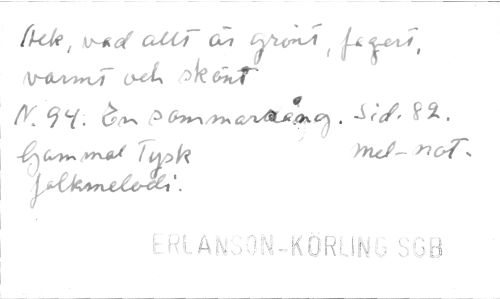 Ack, vad allt är grönt, fagert,
varmt och skönt
N. 94. En sommarsång. Sid. 82.
Gammal Tysk mel-not.
folkmelodi.
ERLANSON-KÖRLING SGB